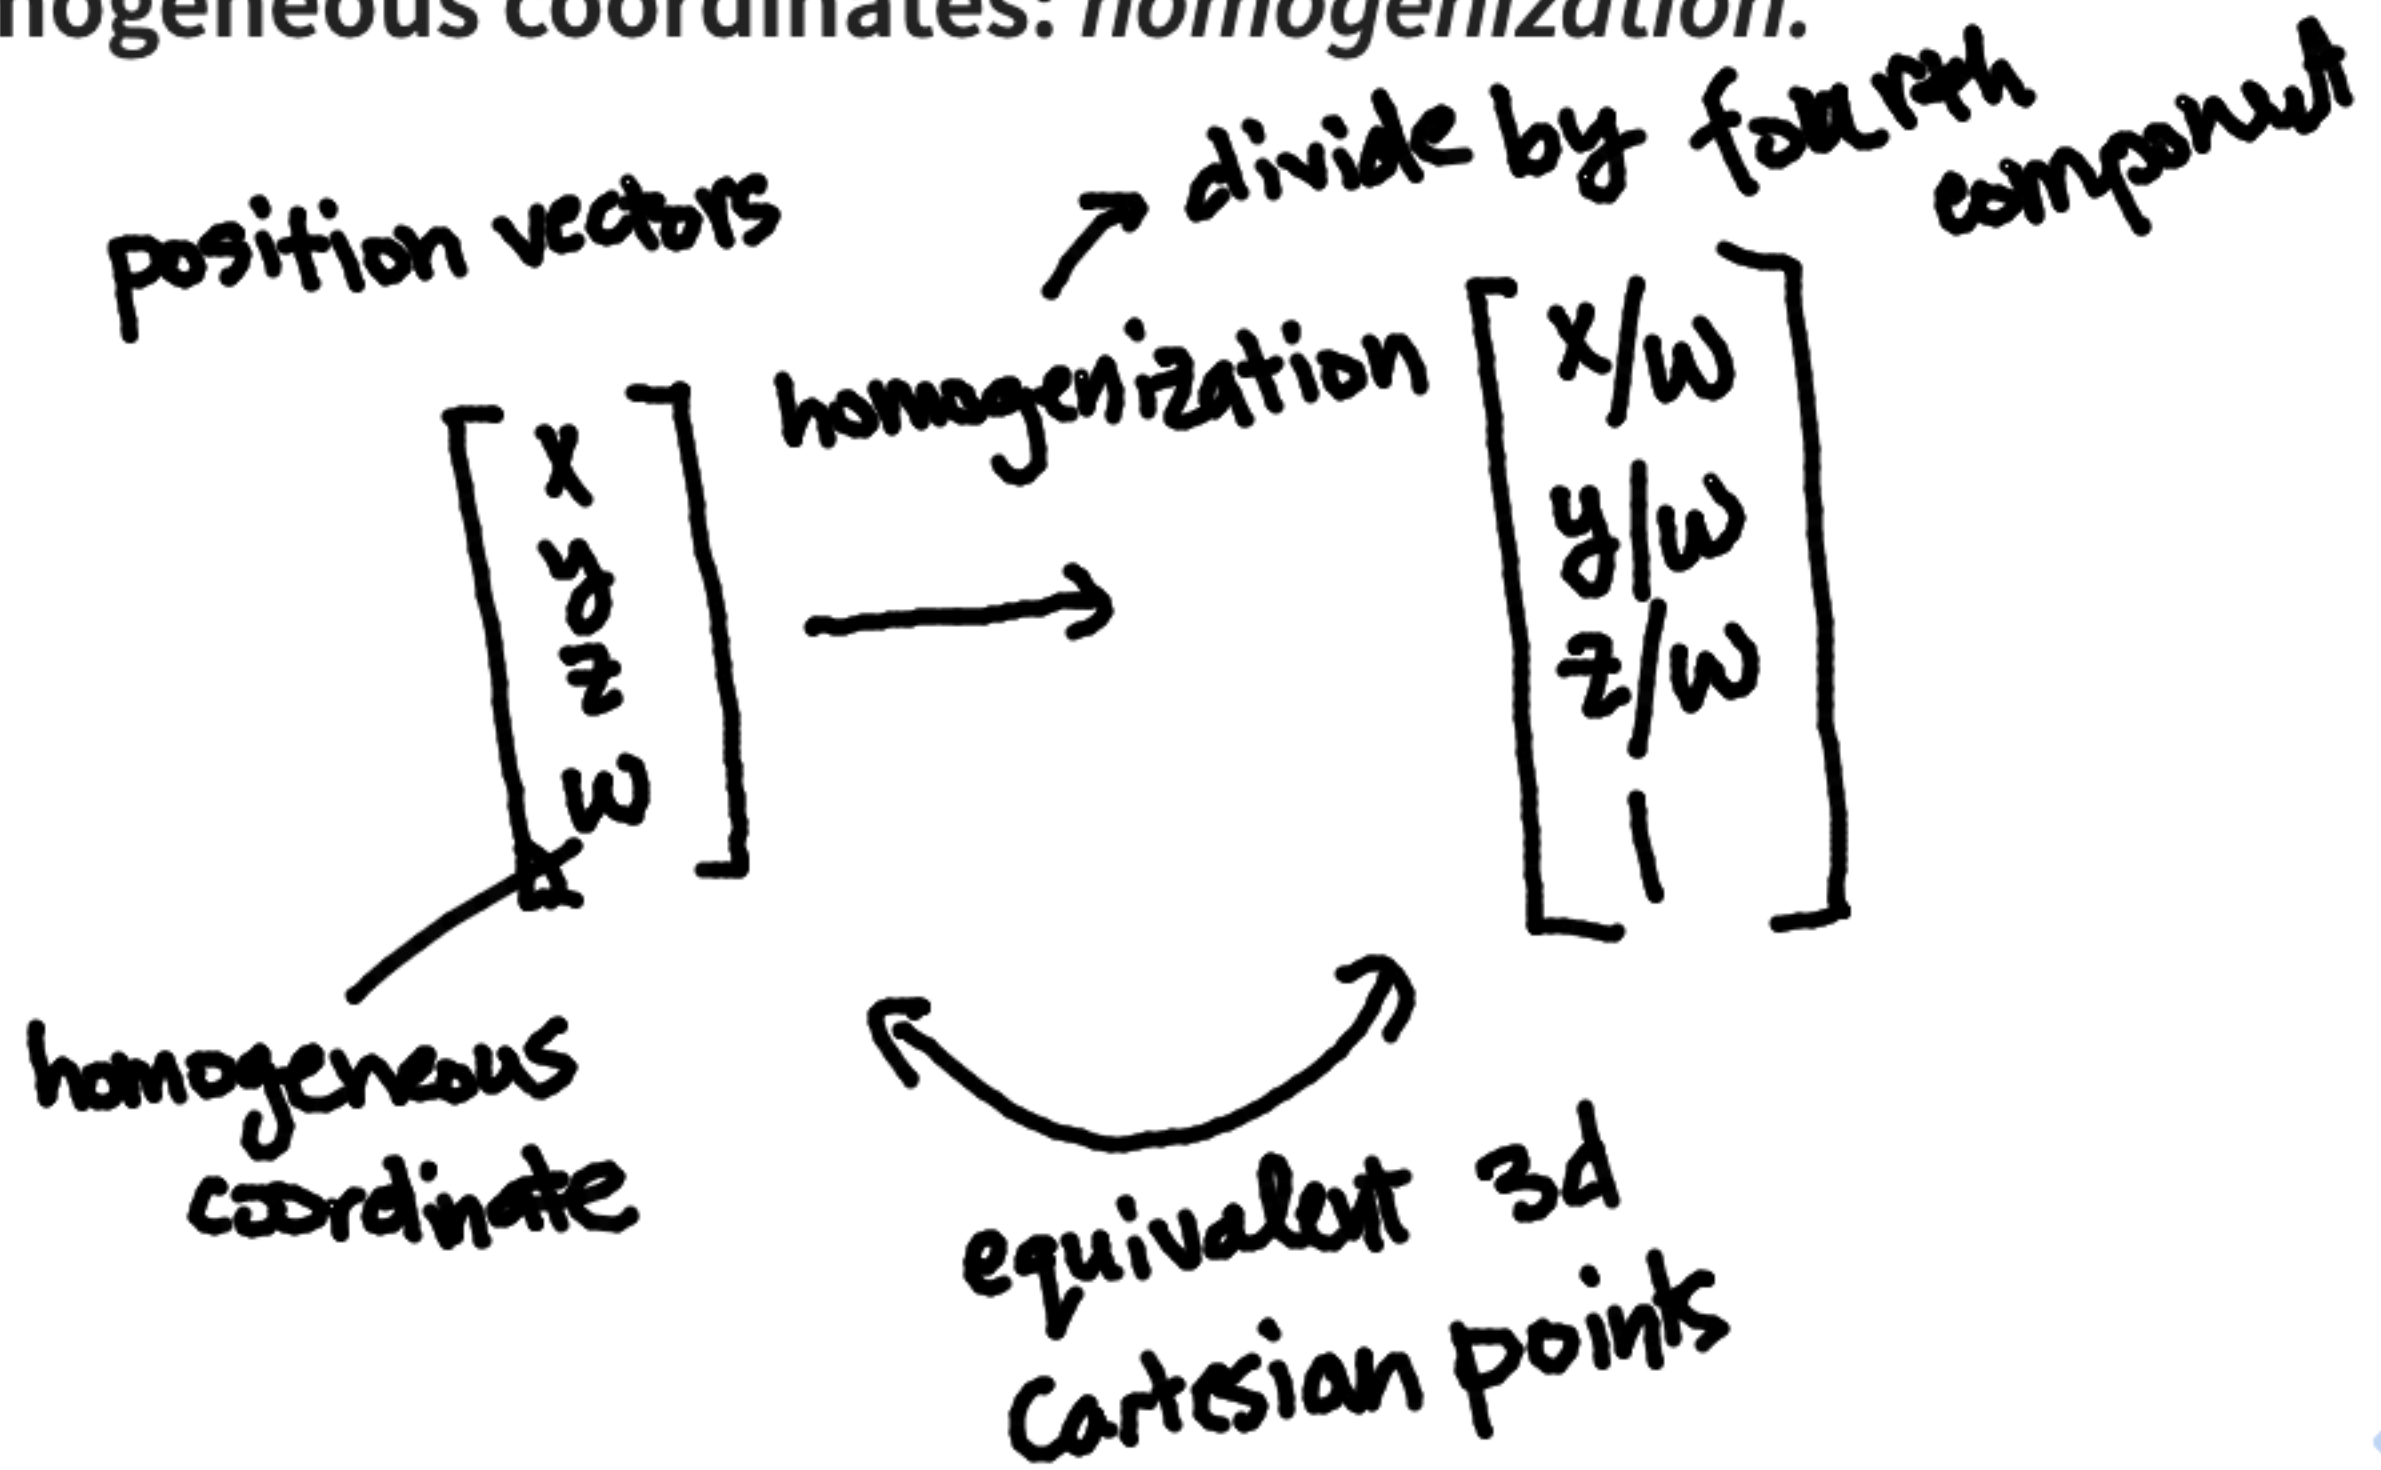 nogeneous coordinates: homogenization.
position vectors
divide by fourth
component
homogenization
x
y
z
w
x/w
y/w
z/w
1
homogeneous
coordinate
equivalent 3d
Cartesian points